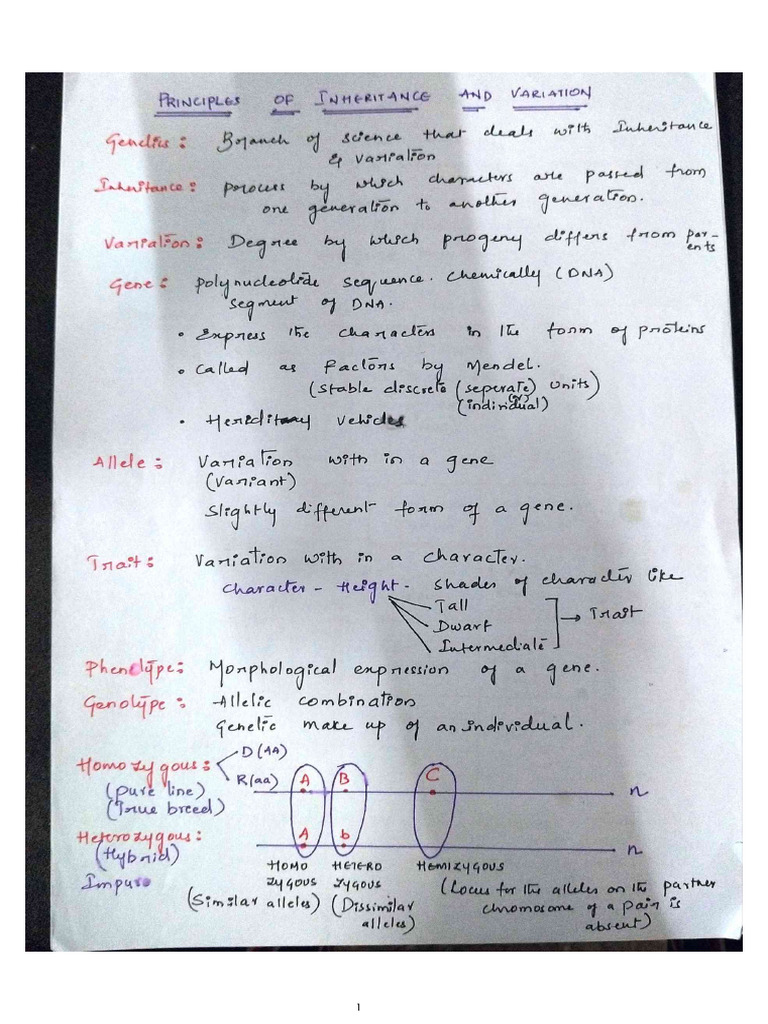 PRINCIPLES OF INHERITANCE AND VARIATION
Genetics: Branch of science that deals with Inheritance
& Variation
Inheritance: process by which characters are passed from
one generation to another generation.
Variation: Degree by which progeny differs from par-
ents
Gene: polynucleotide sequence. Chemically (DNA)
segment of DNA.
• Express the characters in the form of proteins
• Called as factors by Mendel.
(Stable discrete (seperate) units)
(or)
(individual)
• Hereditary vehicles
Allele: Variation with in a gene
(Variant)
Slightly different form of a gene.
Trait: Variation with in a character.
Character - Height - Shades of character like
Tall
Dwarf → Trait
Intermediate
Phenotype: Morphological expression of a gene.
Genotype: Allelic combination
Genetic make up of an individual.
Homozygous: D (AA)
R(aa) A B C n
(pure line)
(True breed)
Heterozygous: A b n
(Hybrid)
Impure
HOMO ZYGOUS (Similar alleles)
HETERO ZYGOUS (Dissimilar alleles)
HEMIZYGOUS
(Locus for the alleles on the partner
chromosome of a pair is
absent)
1